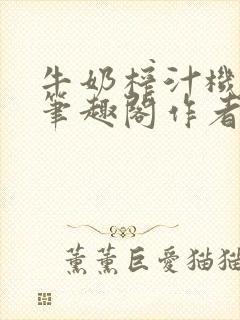 牛奶榨汁機
筆趣閣作者
薰薰巨愛猫猫